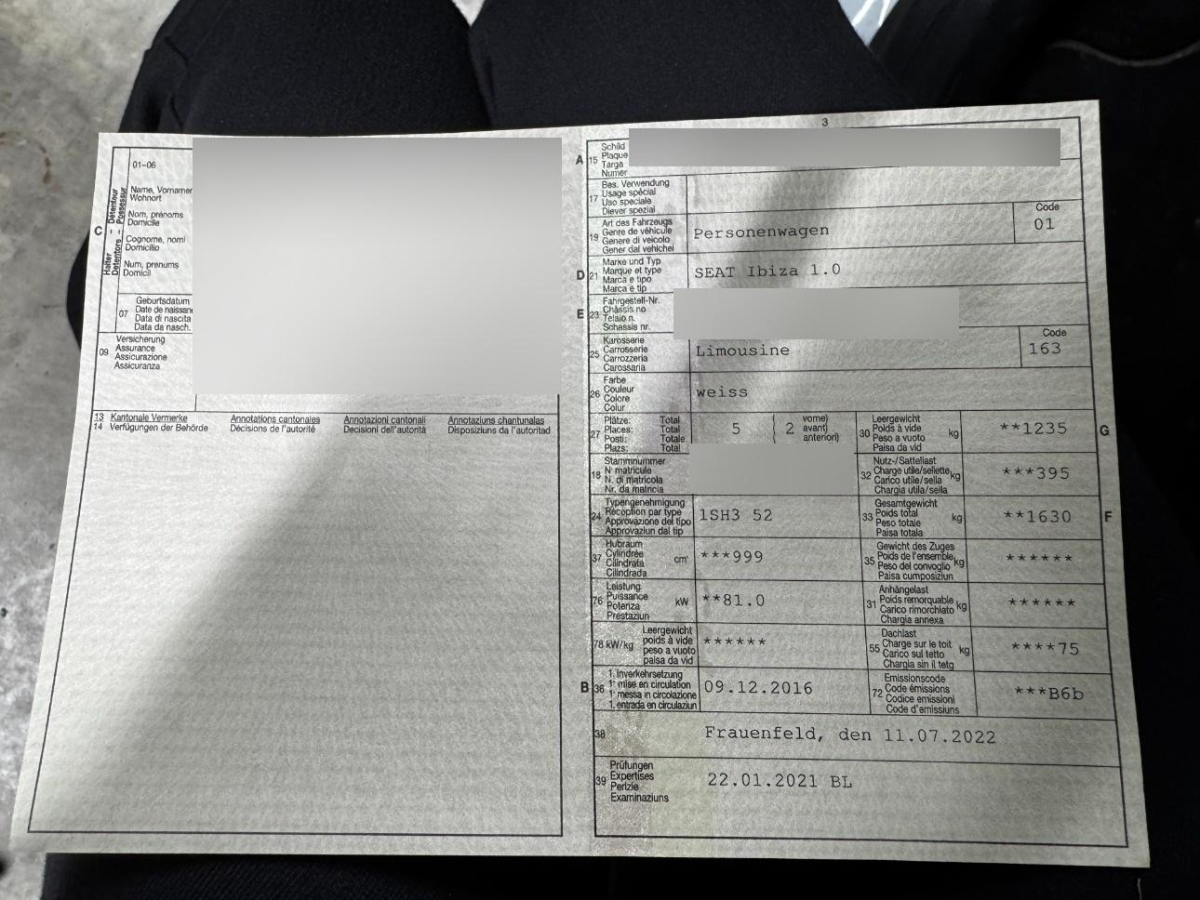 3
01–06
Name, Vorname
Wohnort
Nom, prénoms
Domicile
Cognome, nomi
Domicilio
Num, prenums
Domicil
C
Halter – Détenteur
Detentore – Possessur
07
Geburtsdatum
Date de naissan
Data di nascita
Data da nasch.
09
Versicherung
Assurance
Assicurazione
Assicuranza
13 Kantonale Vermerke Annotations cantonales Annotazioni cantonali Annotaziuns chantunalas
14 Verfügungen der Behörde Décisions de l'autorité Decisioni dell'autorità Disposiziuns da l'autoritad
A 15
Schild
Plaque
Targa
Numer
17
Bes. Verwendung
Usage spécial
Uso speciale
Diever spezial
19
Art des Fahrzeugs
Genre de véhicule
Genere di veicolo
Gener dal vehichel
Personenwagen
Code
01
D 21
Marke und Typ
Marque et type
Marca e tipo
Marca e tip
SEAT Ibiza 1.0
E 23
Fahrgestell-Nr.
Châssis no
Telaio n.
Schassis nr.
25
Karosserie
Carrosserie
Carrozzeria
Carossaria
Limousine
Code
163
26
Farbe
Couleur
Colore
Colur
weiss
27
Plätze: Total
Places: Total
Posti: Totale
Plazs: Total
5
( 2
vorne)
avant)
anteriori)
30
Leergewicht
Poids à vide
Peso a vuoto
Paisa da vid
kg
**1235
G
18
Stammnummer
N° matricule
N. di matricola
Nr. da matricla
32
Nutz-/Sattellast
Charge utile/sellette
Carico utile/sella
Chargia utila/sella
kg
***395
24
Typengenehmigung
Réception par type
Approvazione del tipo
Approvaziun dal tip
1SH3 52
33
Gesamtgewicht
Poids total
Peso totale
Paisa totala
kg
**1630
F
37
Hubraum
Cylindrée
Cilindrata
Cilindrada
cm³
***999
35
Gewicht des Zuges
Poids de l'ensemble
Peso del convoglio
Paisa cumposiziun
kg
******
76
Leistung
Puissance
Potenza
Prestaziun
kW
**81.0
31
Anhängelast
Poids remorquable
Carico rimorchiato
Chargia annexa
kg
******
78 kW/kg
Leergewicht
poids à vide
peso a vuoto
paisa da vid
******
55
Dachlast
Charge sur le toit
Carico sul tetto
Chargia sin il tetg
kg
****75
B 36
1. Inverkehrsetzung
1re mise en circulation
1a messa in circolazione
1. entrada en circulaziun
09.12.2016
72
Emissionscode
Code émissions
Codice emissioni
Code d'emissiuns
***B6b
38
Frauenfeld, den 11.07.2022
39
Prüfungen
Expertises
Perizie
Examinaziuns
22.01.2021 BL